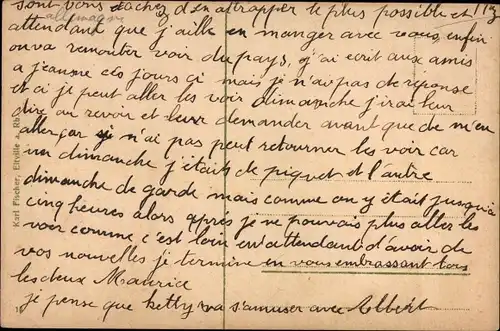 sont bons tachez d'en attrapper le plus possible et
allemagne
119
attendant que j'aille en manger avec vous enfin
on va remonter voir du pays, j'ai ecrit aux amis
a jeanne ces jours ci mais je n'ai pas de réponse
et ci je peut aller les voir dimanche j'irai leur
dire au revoir et leur demander avant que de m'en
aller car si n'ai pas peut retourner les voir car
un dimanche j'étais de piquet et l'autre
dimanche de garde mais comme on y était jusqu'a
cinq heures alors après je ne pouvais plus aller les
voir comme c'est loin en attendant d'avoir de
vos nouvelles je termine en vous embrassant tous
les deux Maurice
je pense que ketty va s'amuser avec Albert
Karl Fischer, Eltville a. Rh.